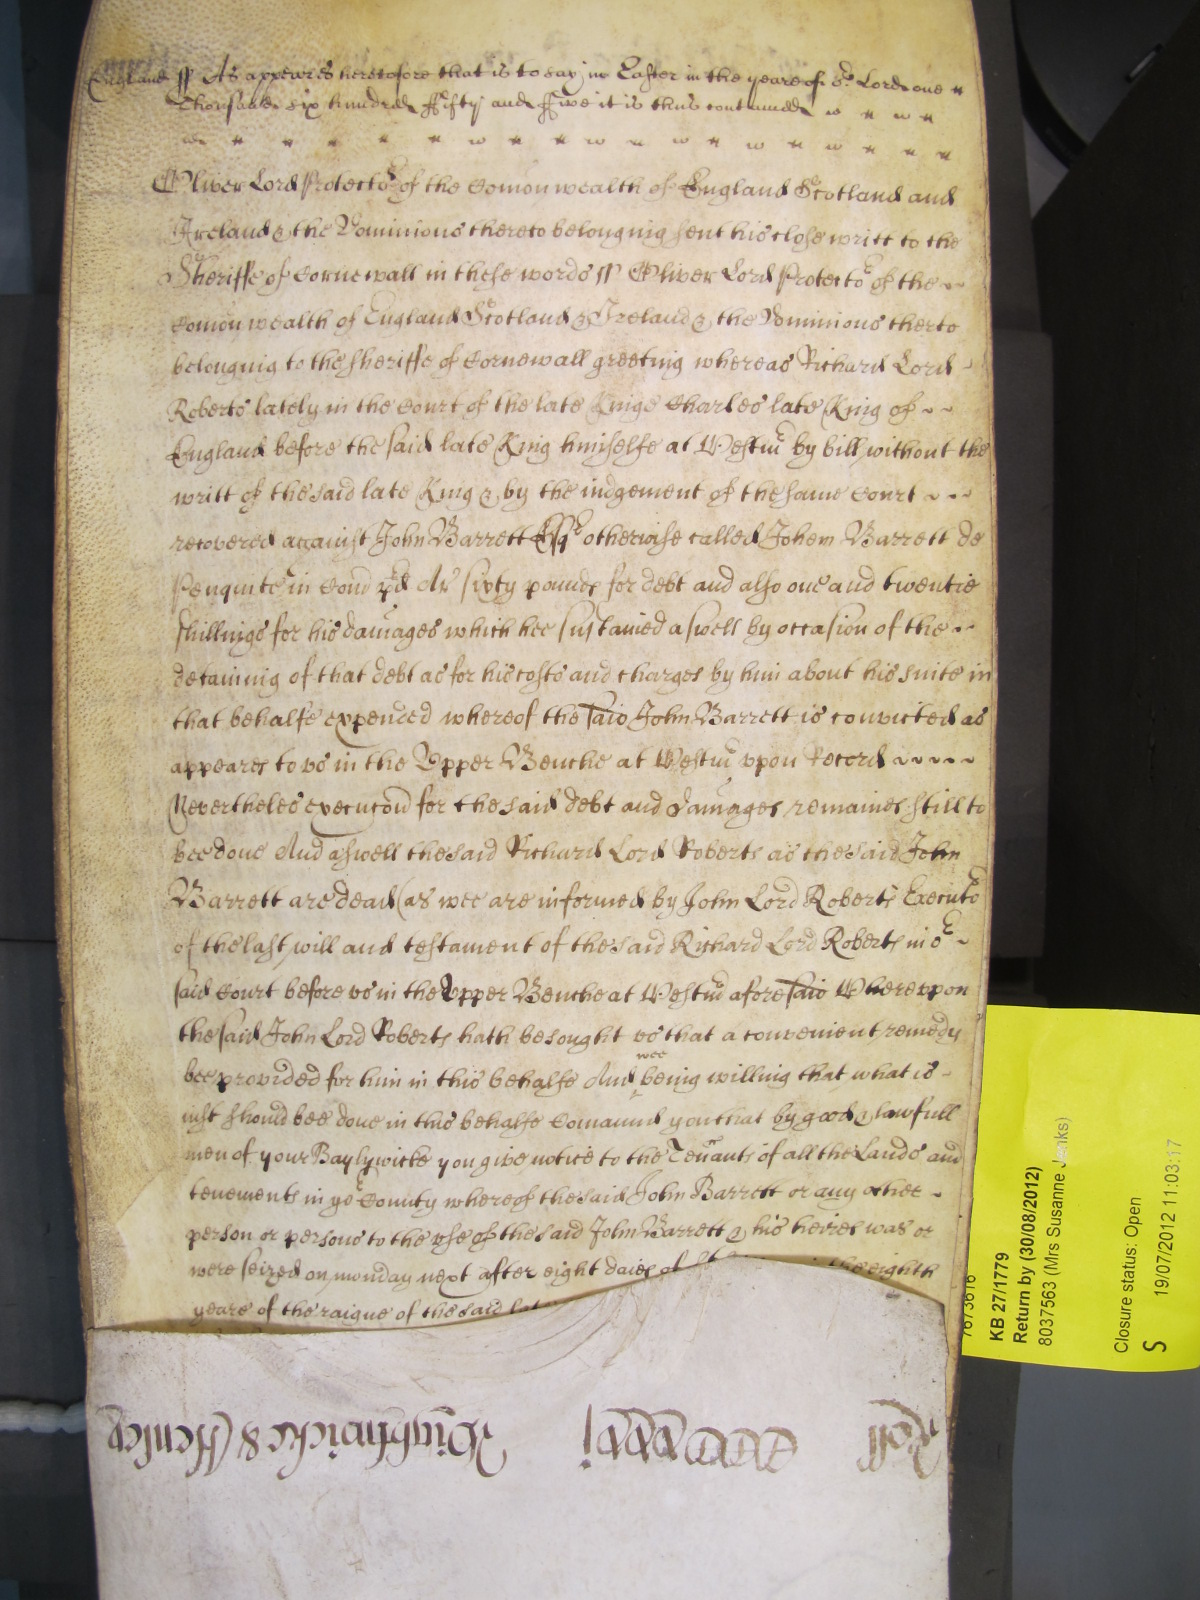 England ss As appeares heretofore that is to say in Easter in the yeare of o.r Lord one
Thousand six hundred ffifty and ffive it is thus contained
Oliver Lord Protecto.r of the Com̄onwealth of England Scotland and
Ireland & the Dominions thereto belonging sent his close writt to the
Sheriffe of Cornewall in these words ss Oliver Lord Protecto.r of the
Com̄onwealth of England Scotland & Ireland & the Dominions therto
belonging to the sheriffe of Cornewall greeting whereas Richard Lord
Roberts lately in the Court of the late Kinge Charles late King of
England before the said late King himselfe at Westm.r by bill without the
writt of the said late King & by the iudgement of the same Court
recovered against John Barrett Esq.r otherwise called Johem Barrett de
Penquite in Com̄ p̄d Ar̄ sixty pounds for debt and also one and twentie
shillings for his damages which hee sustained aswell by occasion of the
detaining of that debt as for his costs and charges by him about his suite in
that behalfe expenced whereof the said John Barrett is convicted as
appeares to vs in the Vpper Benche at Westm.r vpon Record
Nevertheles execucōn for the said debt and damages remaines still to
bee done And aswell the said Richard Lord Roberts as the said John
Barrett are dead (as wee are informed by John Lord Roberts Executo.r
of the last will and testament of the said Richard Lord Roberts in o.r
said Court before vs in the Vpper Benche at Westm.r aforesaid Wherevpon
the said John Lord Roberts hath besought vs that a convenient remedy
bee provided for him in this behalfe And wee being willing that what is
iust should bee done in this behalfe Com̄aund you that by good & lawfull
men of your Baylywicke you give notice to the Tenants of all the Lands and
tenements in yo.r County whereof the said John Barrett or any other
person or persons to the vse of the said John Barrett & his heires was or
were seized on monday next after eight daies of the eighth
yeare of the raigne of the said late
Roll
Wightwicke & Henley
767361б
KB 27/1779
Return by (30/08/2012)
8037563 (Mrs Susanne Jenks)
Closure status: Open
S 19/07/2012 11:03:17